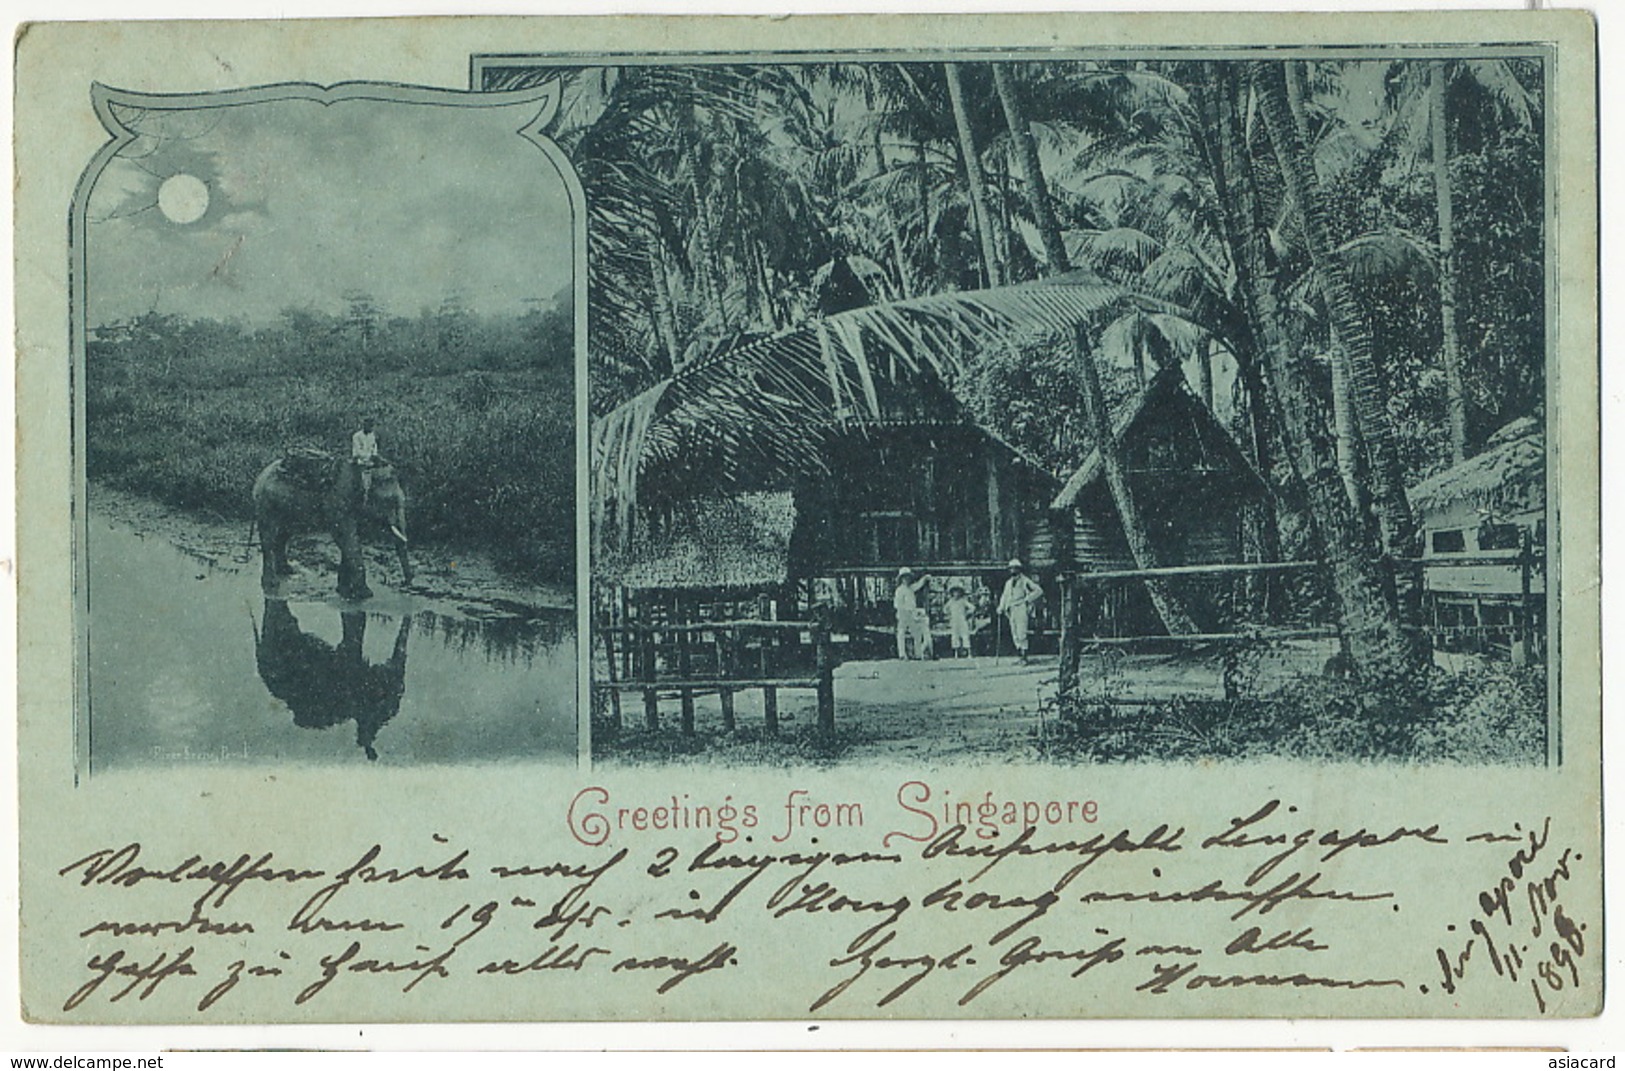 River Scene, Perak
Greetings from Singapore
Verlassen heute nach 2 tägigem Aufenthalt Singapore und
werden am 19ten ds. in Hongkong eintreffen.
Hoffe zu Hause alles wohl. Herzl. Gruss an Alle
Hermann.
Singapore
11. Nov.
1898.
www.delcampe.net
asiacard